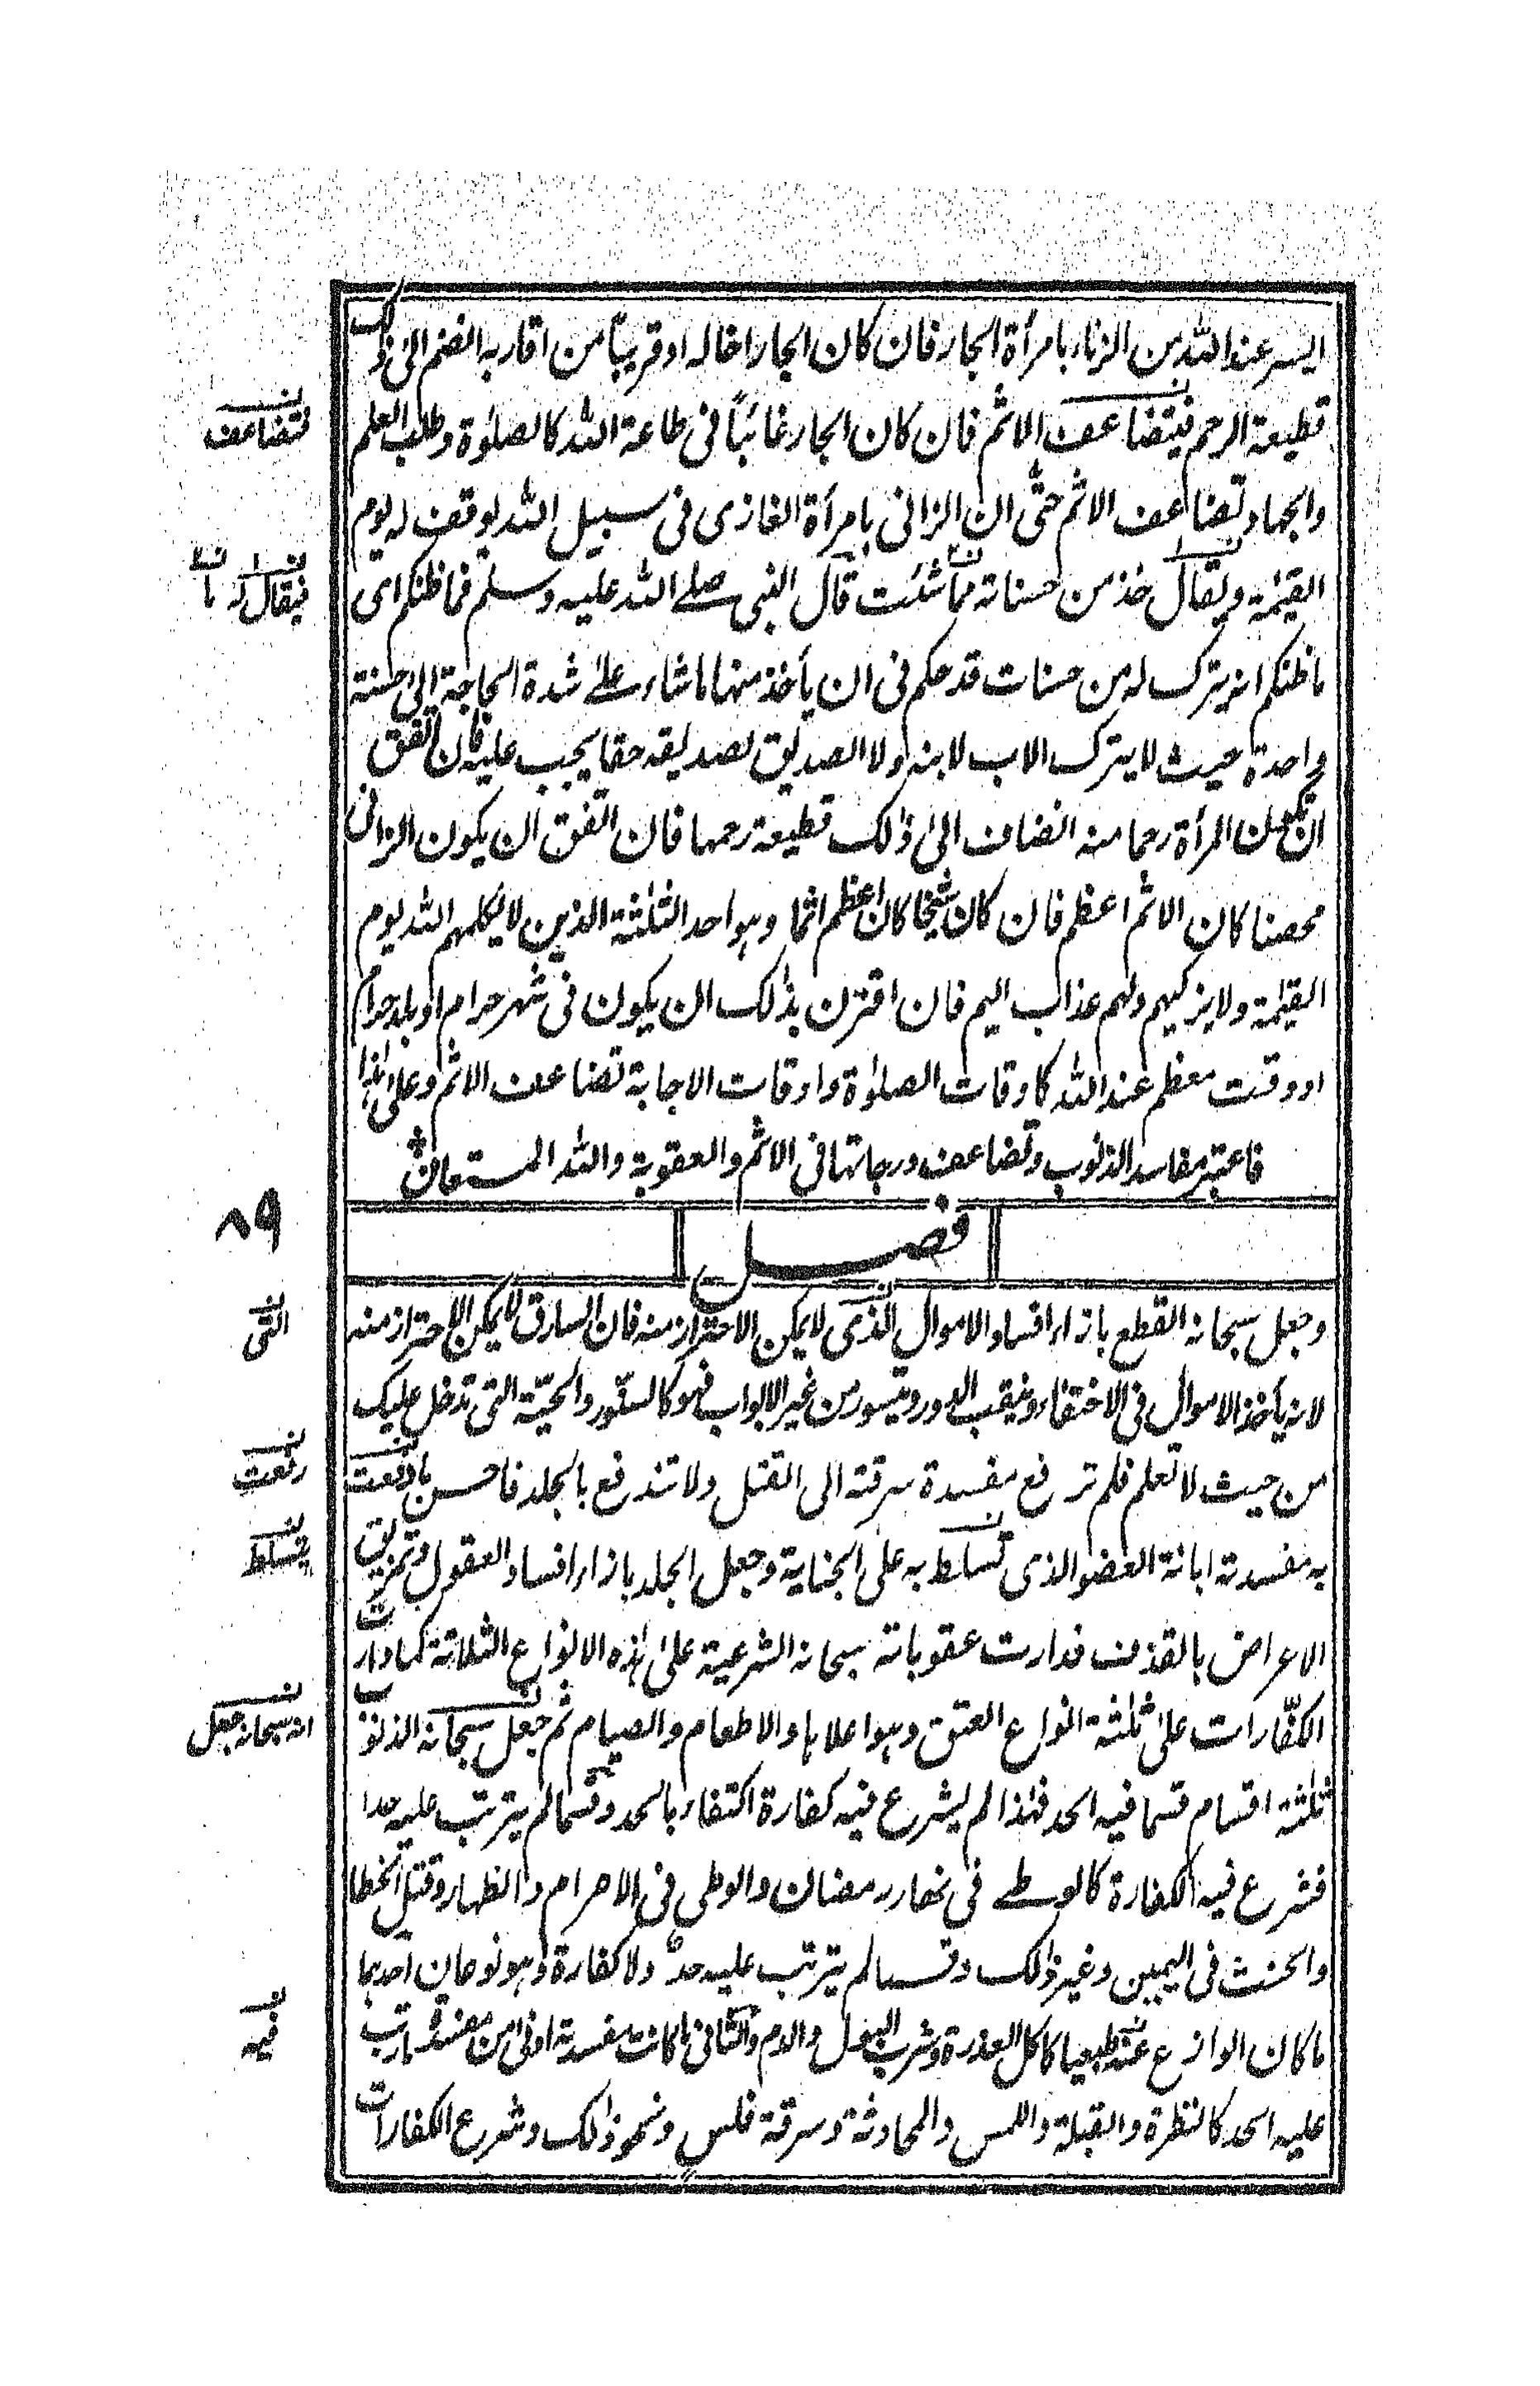 ايسر عند الله من الزناء بامرأة الجار فان كان الجار اخاله او قريبا من اقاربه انضم الى ذلك
قطيعة الرحم فيتضاعف الاثم فان كان الجار غائباً فى طاعة الله كالصلوة وطلب العلم
فتضاعف
والجهاد تضاعف الاثم حتّى ان الزانى بامرأة الغازى فى سبيل الله يوقف له يوم
القيمة ويقال خذ من حسناته مما شئت قال النبى صلے الله عليه وسلم فما ظنكم اى
فيقال له ما
ما ظنكم انه يترك له من حسنات قد حكم فى ان يأخذ منها ما شاء علے شدة الحاجة الى حسنة
واحدة حيث لا يترك الاب لابنه ولا الصديق لصديقه حقا يجب عليه فان اتفق
ان تكون المرأة رحما منه انضاف الى ذلك قطيعة رحمها فان اتفق ان يكون الزانى
محصنا كان الاثم اعظم فان كان شيخا كان اعظم اثما وهو احد الثلثة الذين لا يكلمهم الله يوم
القيمة ولا يزكيهم ولهم عذاب اليم فان اقترن بذلك ان يكون فى شهر حرام او بلد حرام
او وقت معظم عند الله كاوقات الصلوة واوقات الاجابة تضاعف الاثم وعلى هذا
فاعتبر مفاسد الذنوب وتضاعف درجاتها فى الاثم والعقوبة والله المستعان
۸۹
فصل
وجعل سبحانه القطع بازاء افساد الاموال الذى لا يمكن الاحتراز منه فان السارق لا يمكن الاحتراز منه
التى
لانه يأخذ الاموال فى الاختفاء وينقب الدور ويتسور من غير الابواب فهو كالسنّور والحيّة التى تدخل عليك
من حيث لا تعلم فلم ترفع مفسدة سرقته الى القتل ولا تندفع بالجلد فاحسن ما دفعت
رفعت
به مفسدته ابانة العضو الذى تسلط به على الجناية وجعل الجلد بازاء افساد العقول وتمزيق
يتسلط
الاعراض بالقذف فدارت عقوباته سبحانه الشرعية على هذه الانواع الثلاثة كما دارت
الكفّارات على ثلثة انواع العتق وهو اعلاها والاطعام والصيام ثم جعل سبحانه الذنوب
انه سبحانه جعل
ثلثة اقسام قسما فيه الحد فهذا لم يشرع فيه كفارة اكتفاء بالحد وقسما لم يترتب عليه حدا
فشرع فيه الكفارة كالوطے فى نهار رمضان والوطى فى الاحرام والظهار وقتل الخطا
والحنث فى اليمين وغير ذلك وقسما لم يترتب عليه حدٌ ولا كفارة وهو نوعان احدهما
ما كان الوازع عنه طبعيا كاكل العذرة وشرب البول والدم والثانى ما كانت مفسدته ادنى من مفسدة ما رتب
فيه
عليه الحد كالنظرة والقبلة واللمس والمحادثة وسرقة فلس ونحو ذلك وشرع الكفارات